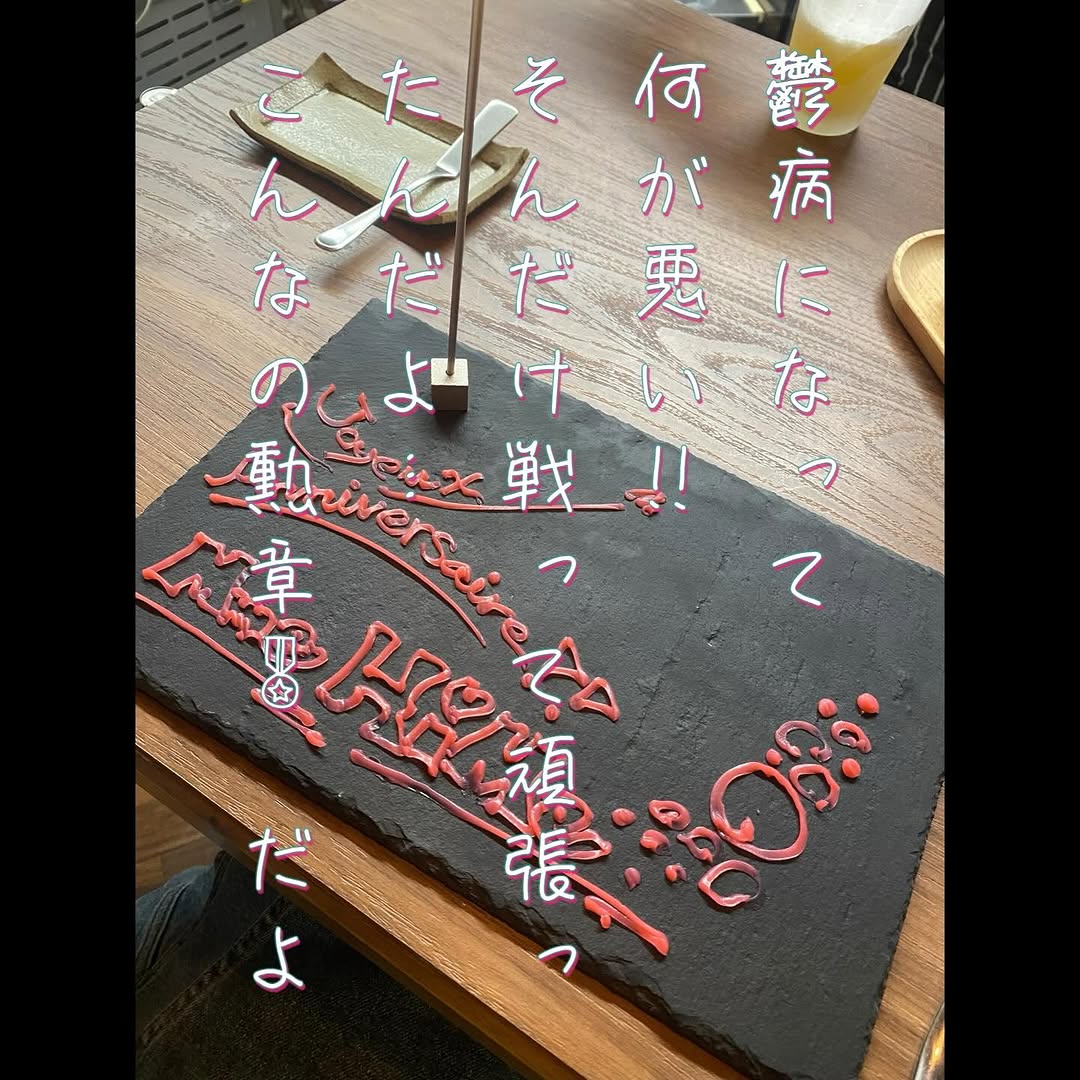 鬱病になって
何が悪い!!
そんだけ戦って頑張っ
たんだよ…
こんなの勲章🎖だよ
Joyeux
Anniversaire